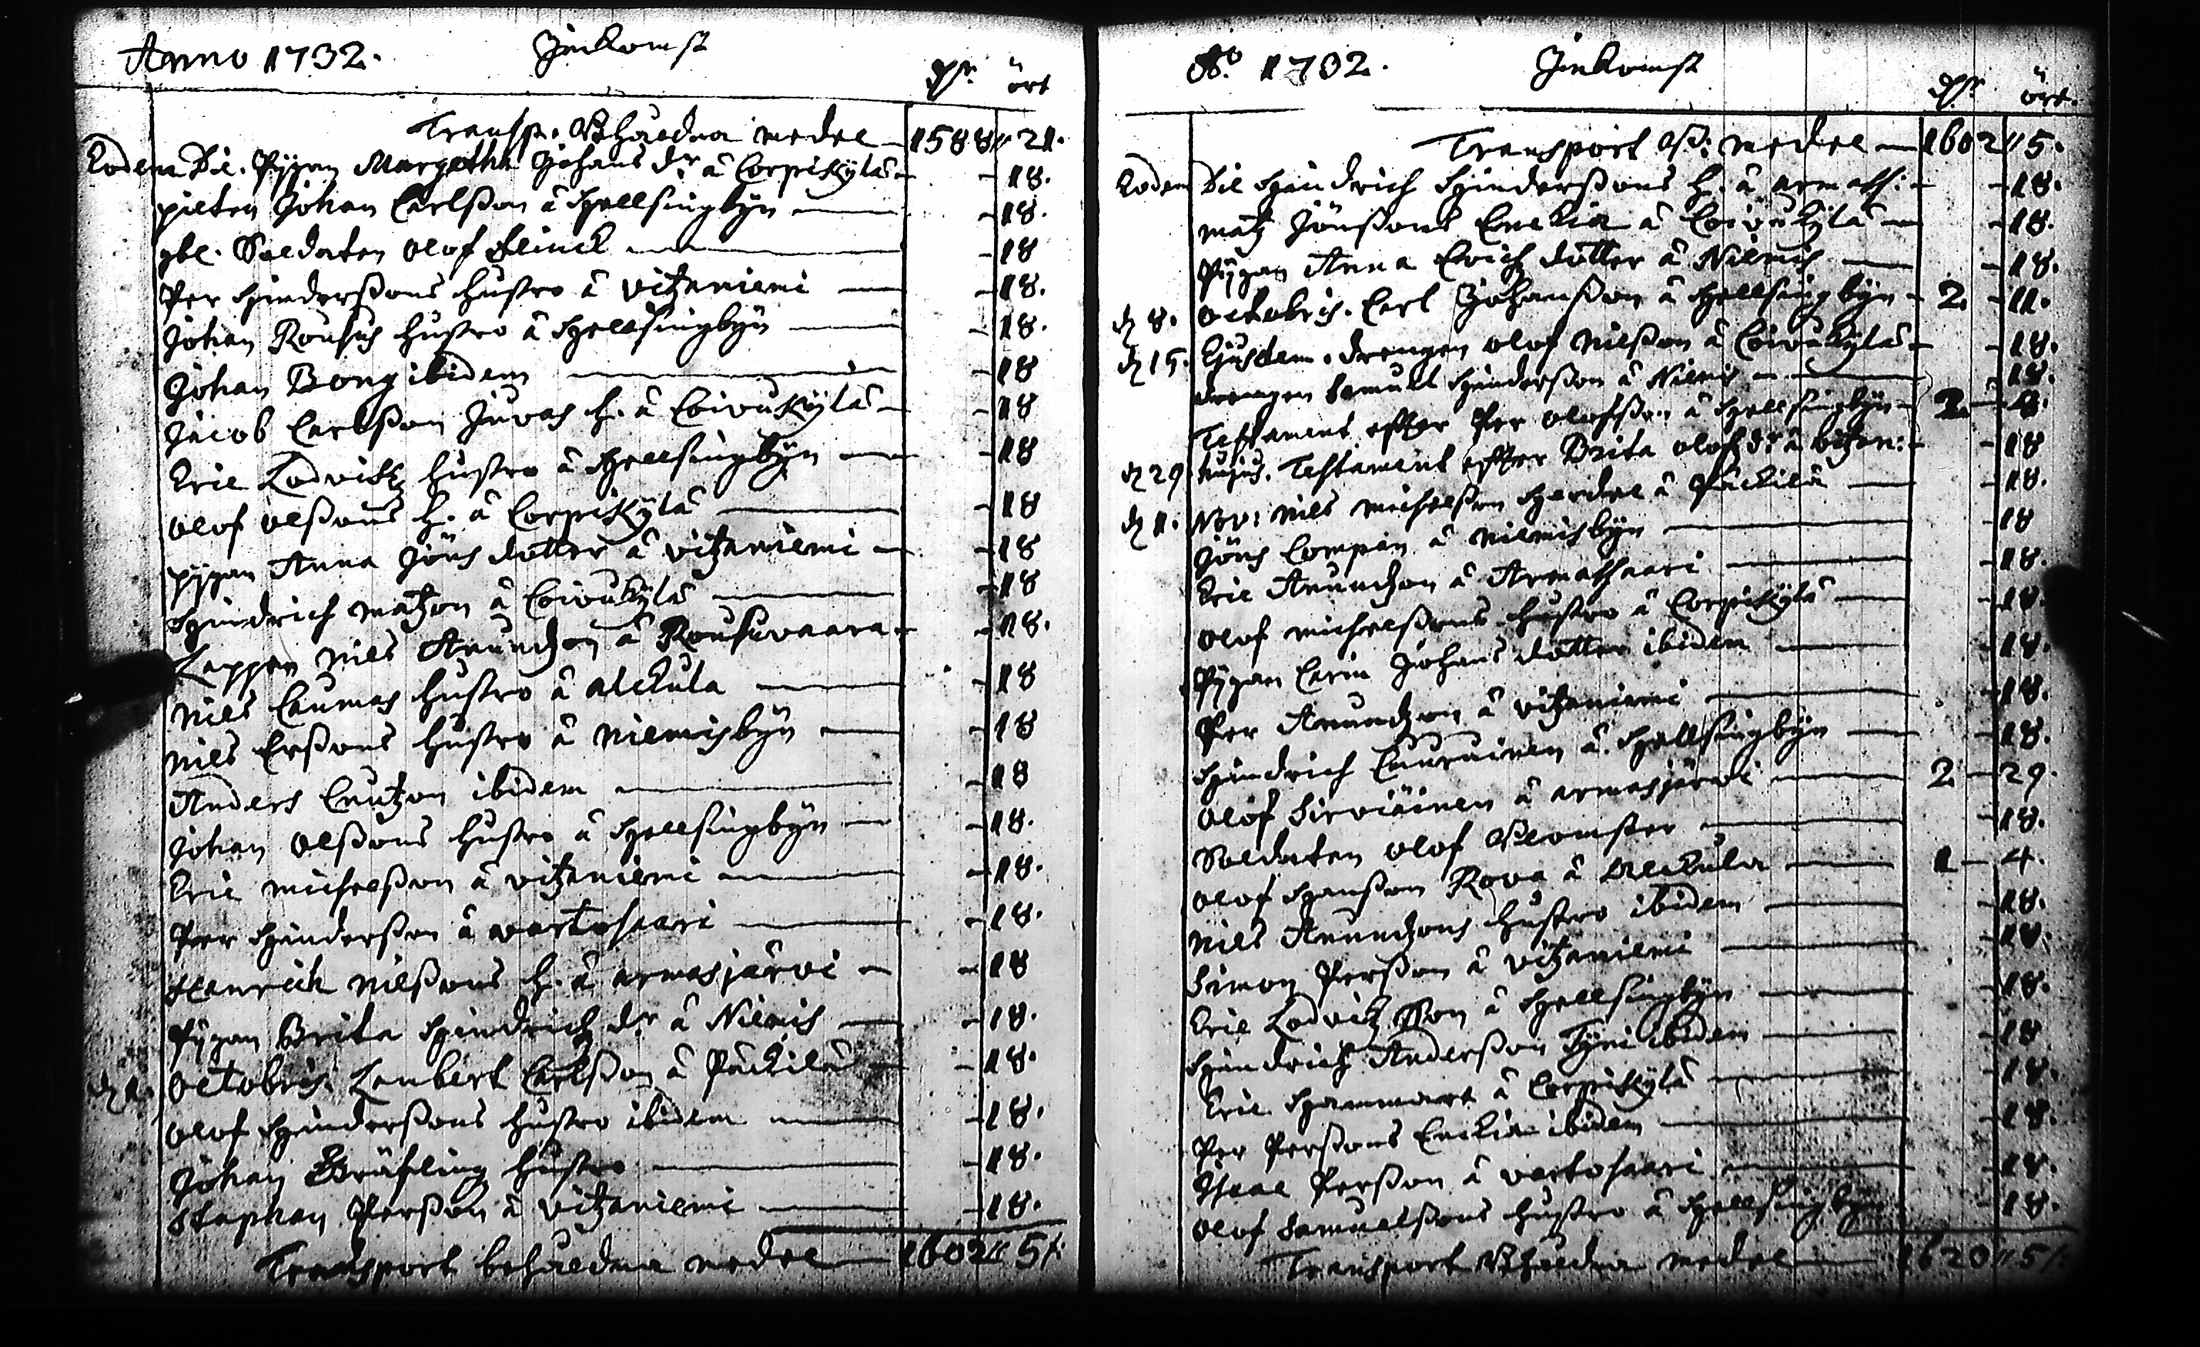 Anno 1732. Jnkomst
dr. ört
Transp. Behåldna medel 1588 21.
Eodem Die. Pigan Margetha Johans dr. å Corpikylä 18.
pilten Johan Carlßon å Hellsingbyn 18.
gbl. Soldaten Olof Flinck 18
Per Hindersßons hustro å Vitzaniemi 18.
Johan Rousus hustro å Hellsingbyn 18.
Johan Bong ibidem 18
Jacob Carlßon Juvas h. å Coivukylä 18
Eric Lodvitz hustro å Hellsingbyn 18
Olof Olßons h. å Corpikylä 18
pigan Anna Jöns dotter å Vitzaniemi 18
Hindrich Matzon å Coivukylä 18
Lappen Nils Anundzon å Rousuvaara 18.
Nils Caumas hustro å Alckula 18
Nils Erßons hustro å Niemisbyn 18
Anders Cnutzon ibidem 18
Johan Olßons hustro å Hellsingbyn 18.
Eric Michelßon å Vitzaniemi 18.
Per Hinderßon å Vartosaari 18.
Henrich Nilßons h. å Armasjärvi 18
Pigan Brita Hindrichz dr. å Niemis 18.
d. 1. Octobris. Lambert Carlßon å Päckilä 18.
Olof Hinderßons hustro ibidem 18.
Johan Gräfling hustro 18.
Staphan Perßon å Vitzaniemi 18.
Transport behåldna medel 1602 5
Ao. 1732. Jnkomst
dr. ört.
Transport B: medel 1602 5.
Eodem Die Hindrich Hinderßons h. å Armass: 18.
Matz Jönßons Enckia å Coivukylä 18.
Pigan Anna Erichz dotter å Niemis 18.
d. 8. Octobris. Carl Johanßon å Hellsingbyn 2 11.
d. 15. Ejusdem. Drengen Olof Nilßon å Coivukylä 18.
Drengen Samuel Hinderßon å Niemis 18.
Testament effter Per Olofsßon å Hellsingbyn 2. 8.
d. 29 hujus. Testament effter Brita Olofs dr. å Vitzan: 18
d. 1. Nov: Nils Michelßon å Päckilä 18.
Jöns Compan å Niemisbyn 18
Eric Anundzon å Armassaari 18.
Olof Michelßons hustro å Corpikylä 18.
Pigan Carin Johans dotter ibidem 18.
Per Anundzon å Vitzaniemi 18.
Hindrich Lauurainen å Hellsingbyn 18.
Olof Sirviäinen å Armasjärvi 2 29.
Soldaten Olof Blomster 18.
Olof Hanßon Rova å Alckula 1 4.
Nils Anundzons hustro ibidem 18.
Simon Perßon å Vitzaniemi 18.
Eric Lodvitz Son å Hellsingbyn 18.
Hindrich Anderßon Tyni ibidem 18
Eric Hammart å Corpikylä 18.
Per Perßons Enckia ibidem 18.
Isaac Perßon å Vartosaari 18.
Olof Samuelßons hustro å Hellsingbyn 18.
Transport Behåldna medel 1620 5